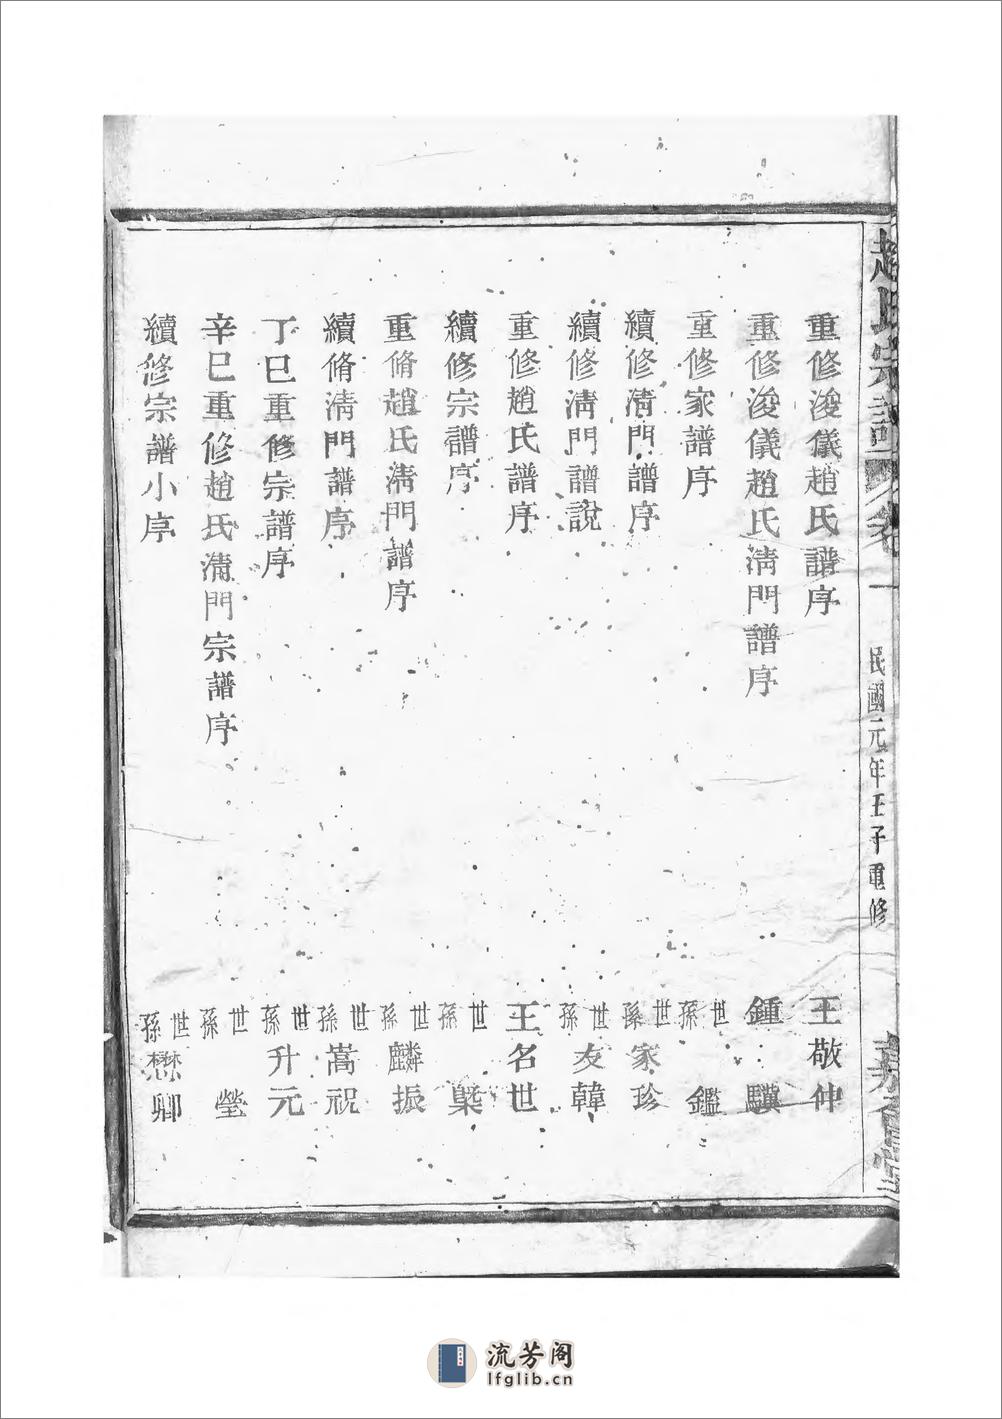 趙氏宗譜 卷一 民國元年壬子重修
重修浚儀趙氏譜序 王敬仲
重修浚儀趙氏淸門譜序 鍾驥
重修家譜序 世孫鑑
續修淸門譜序 世孫家珍
續修淸門譜說 世孫友韓
重修趙氏譜序 王名世
續修宗譜序 世孫㮚
重脩趙氏淸門譜序 世孫麟振
續脩淸門譜序 世孫嵩祝
丁巳重修宗譜序 世孫升元
辛巳重修趙氏淸門宗譜序 世孫瑩
續修宗譜小序 世孫懋卿
流芳阁
lfglib.cn